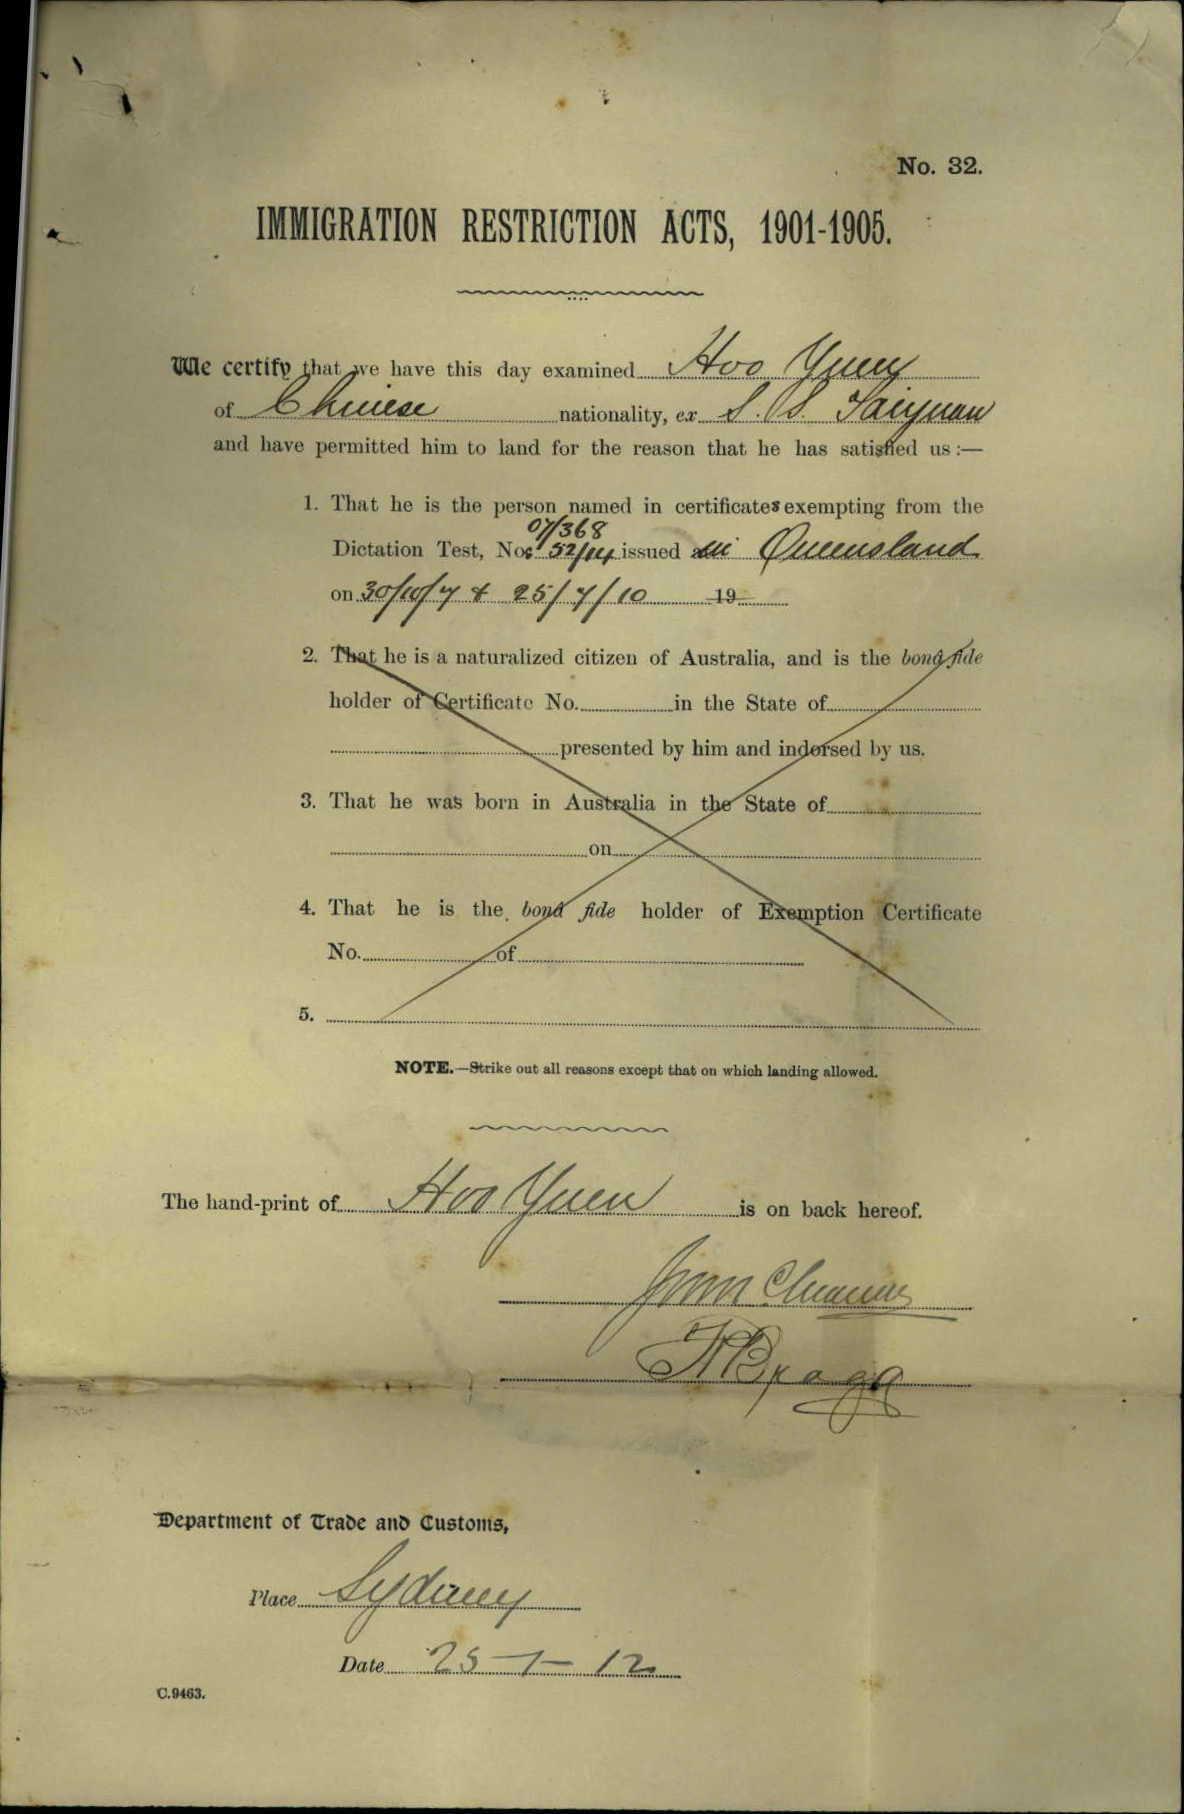 No. 32.
IMMIGRATION RESTRICTION ACTS, 1901-1905.
We certify that we have this day examined Hoo Yuen
of Chinese nationality, ex S. S. Taiyuan
and have permitted him to land for the reason that he has satisfied us :—
1. That he is the person named in certificates exempting from the
07/368
Dictation Test, Nos 52/14 issued in Queensland
on 30/10/7 & 25/7/10 19
2. That he is a naturalized citizen of Australia, and is the bonâ fide
holder of Certificate No. in the State of
presented by him and indorsed by us.
3. That he was born in Australia in the State of
on
4. That he is the bonâ fide holder of Exemption Certificate
No. of
5.
NOTE.—Strike out all reasons except that on which landing allowed.
The hand-print of Hoo Yuen is on back hereof.
Braga
Department of Trade and Customs,
Place Sydney
Date 25-1-12
C.9463.